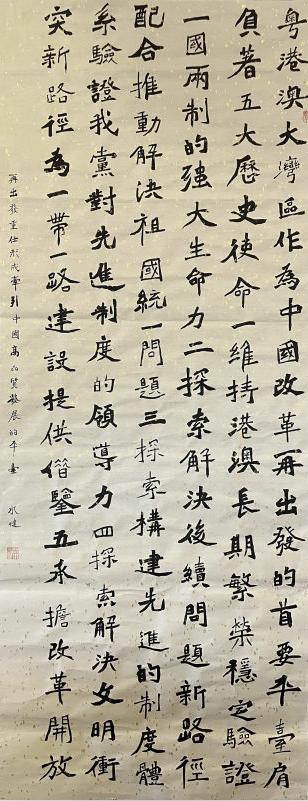 粤港澳大灣區作為中國改革再出發的首要平臺肩
負著五大歷史使命一維持港澳長期繁榮穩定驗證
一國兩制的强大生命力二探索解決後續問題新路徑
配合推動解決祖國統一問題三探索構建先進的制度體
系驗證我黨對先進制度的領導力四探索解決文明衝
突新路徑為一帶一路建設提供借鑒五承擔改革開放
再出發重任形成牽引中國高品質發展的平臺